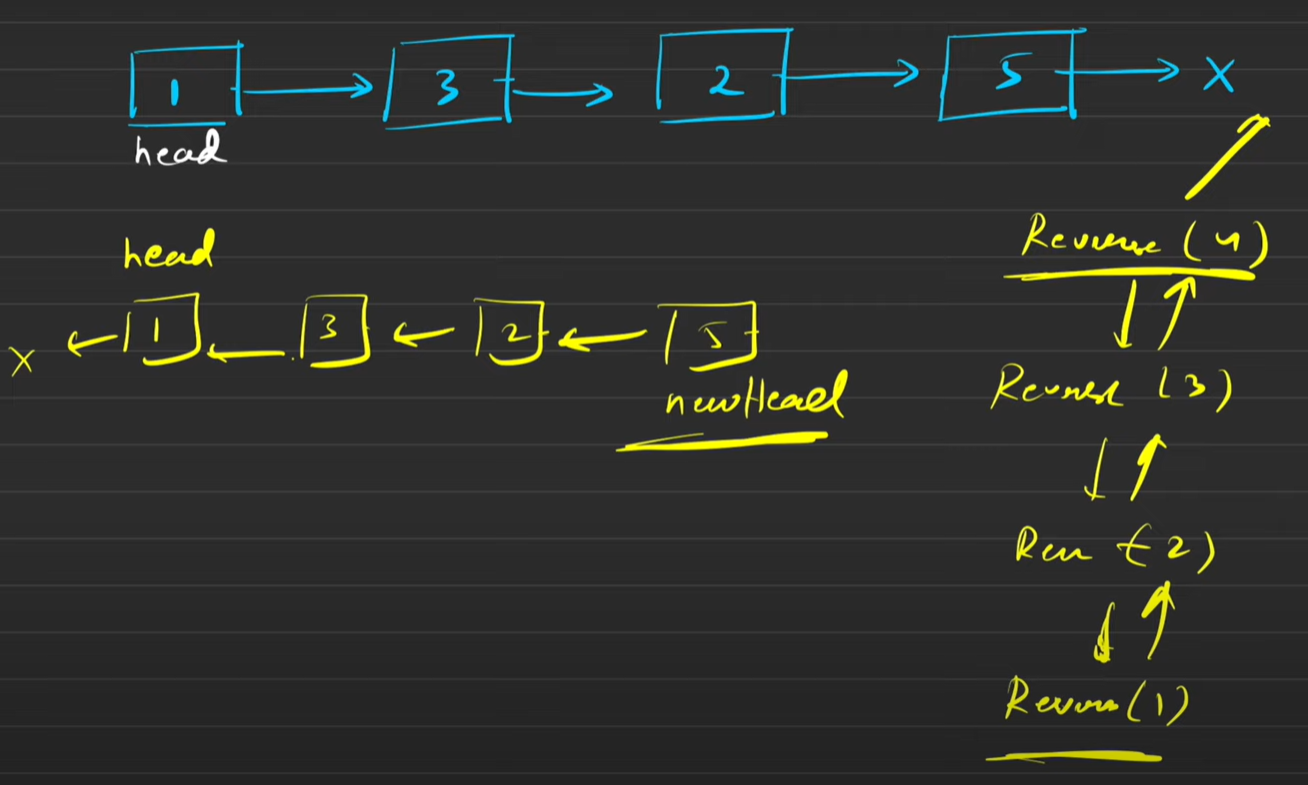 1 → 3 → 2 → 5 → X
head
head
X ← 1 ← 3 ← 2 ← 5
newHead
Reverse (4)
Reverse (3)
Rev (2)
Revers (1)